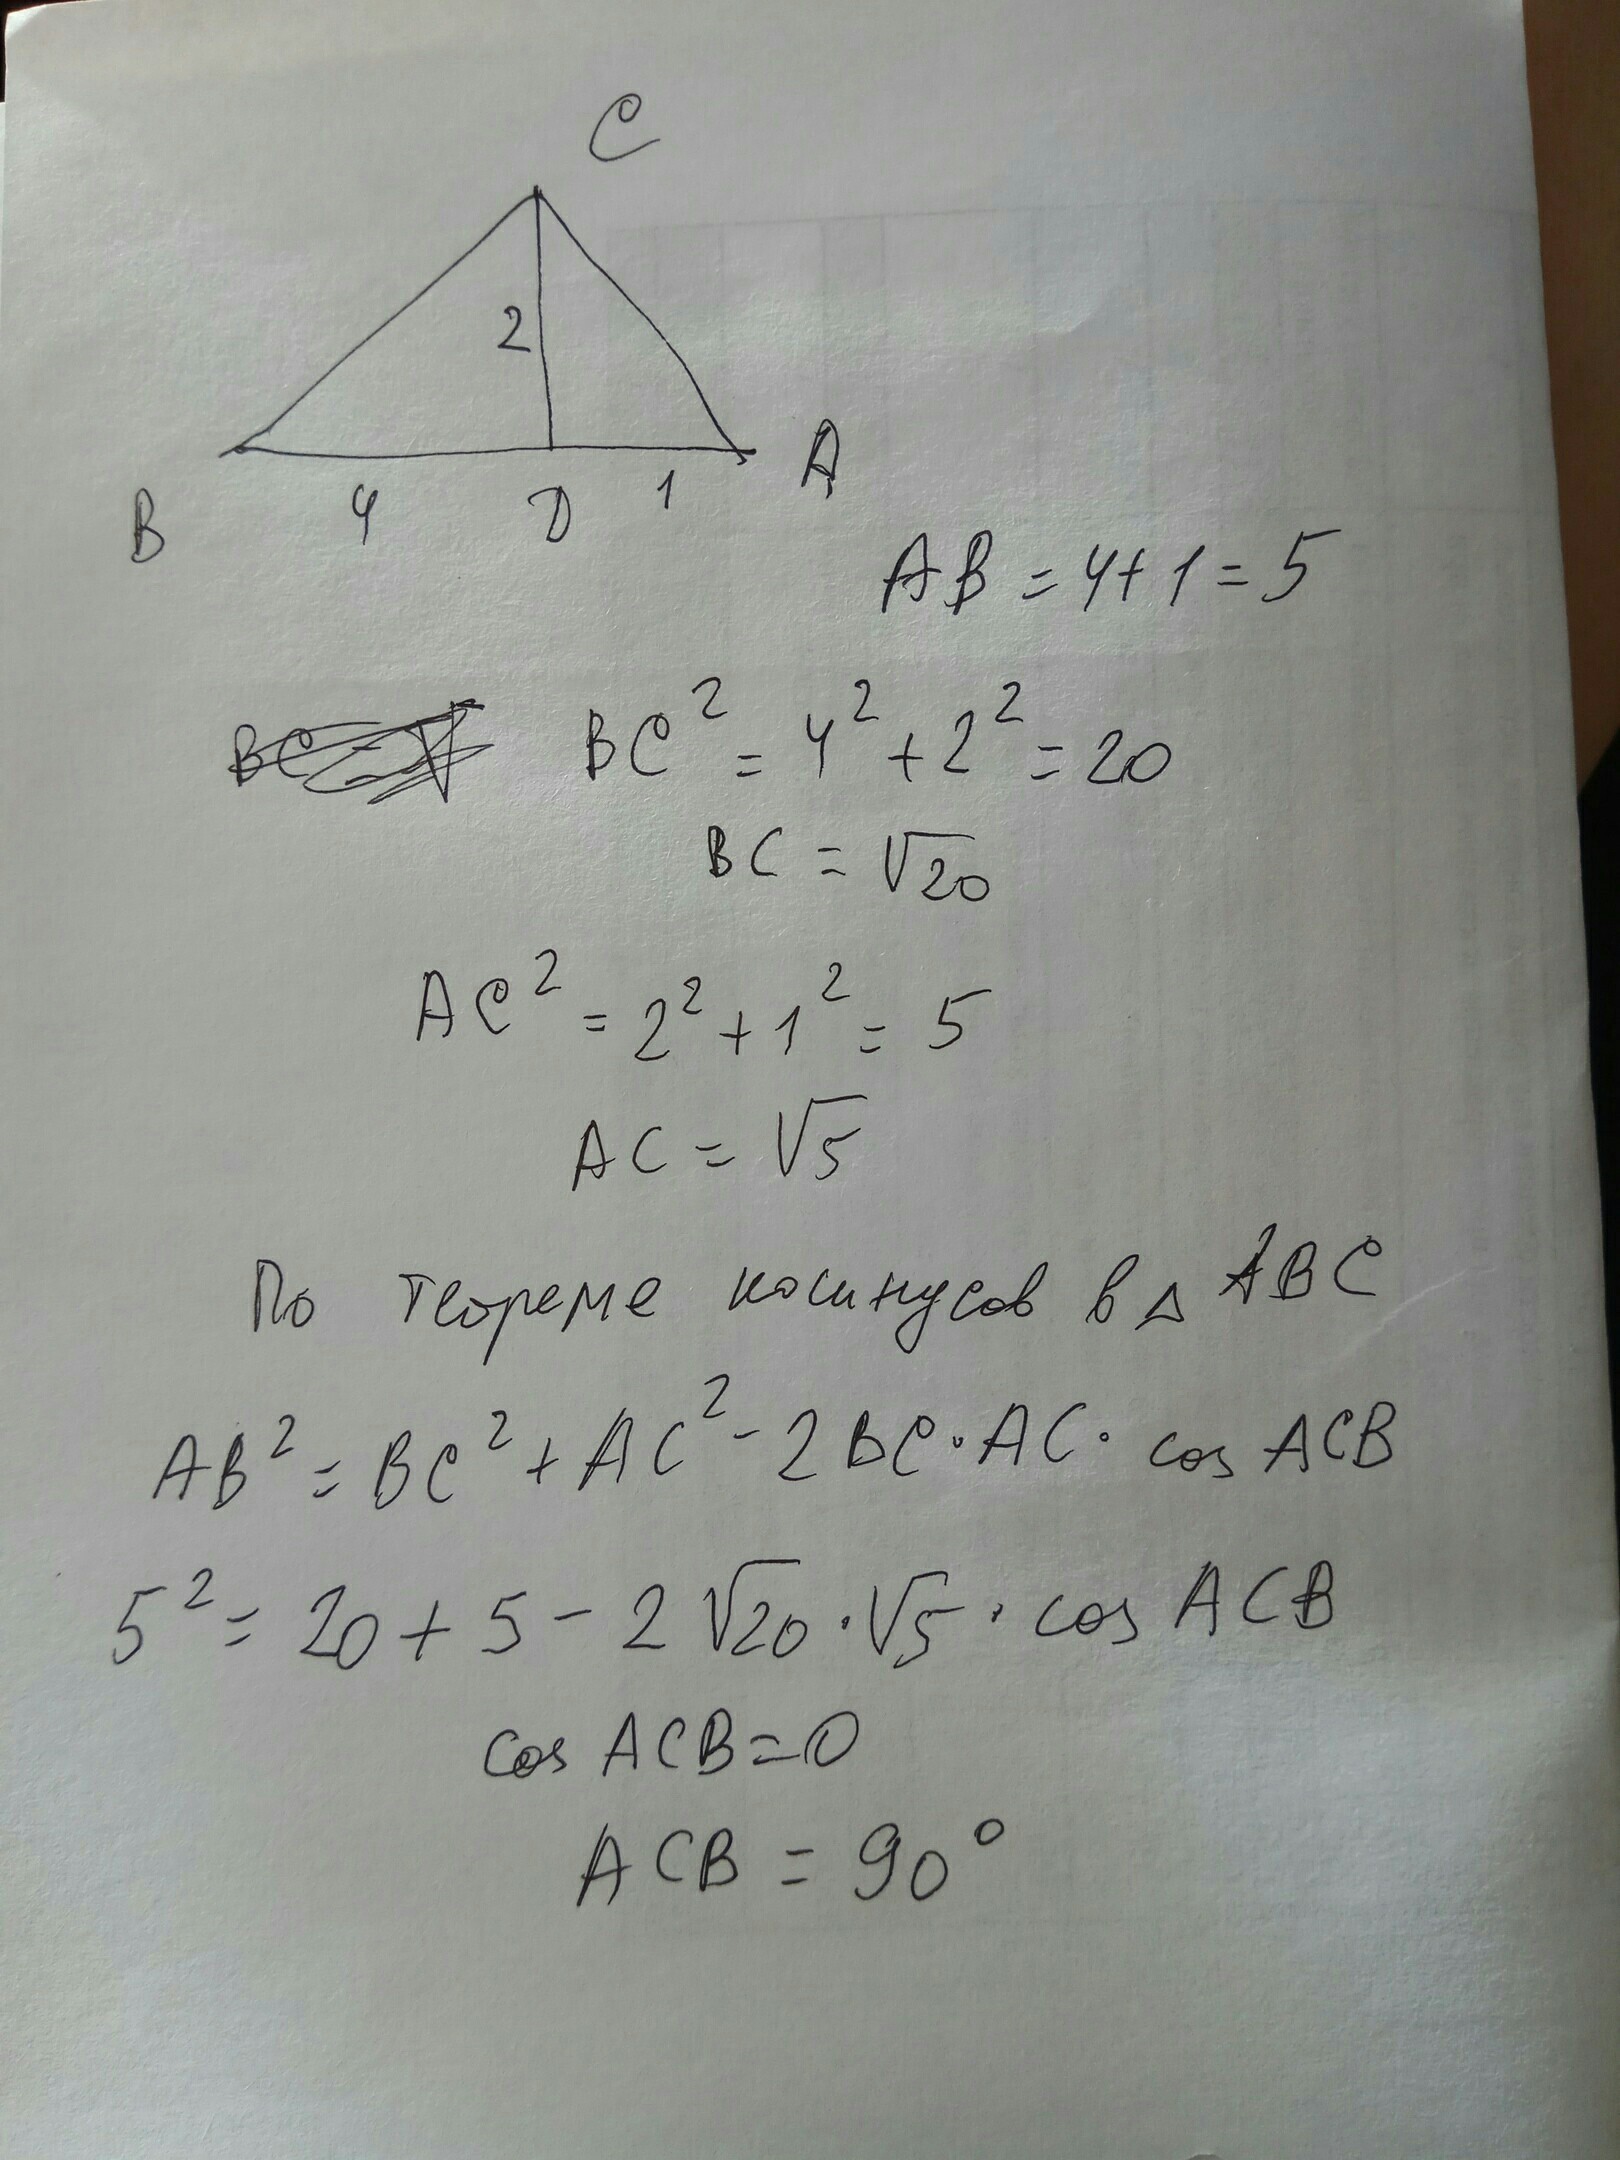 C
2
A
B 4 D 1
AB = 4+1 = 5
BC = √ BC² = 4² + 2² = 20
BC = √20
AC² = 2² + 1² = 5
AC = √5
По теореме косинусов в △ ABC
AB² = BC² + AC² - 2BC·AC· cos ACB
5² = 20 + 5 - 2√20·√5· cos ACB
cos ACB = 0
ACB = 90°